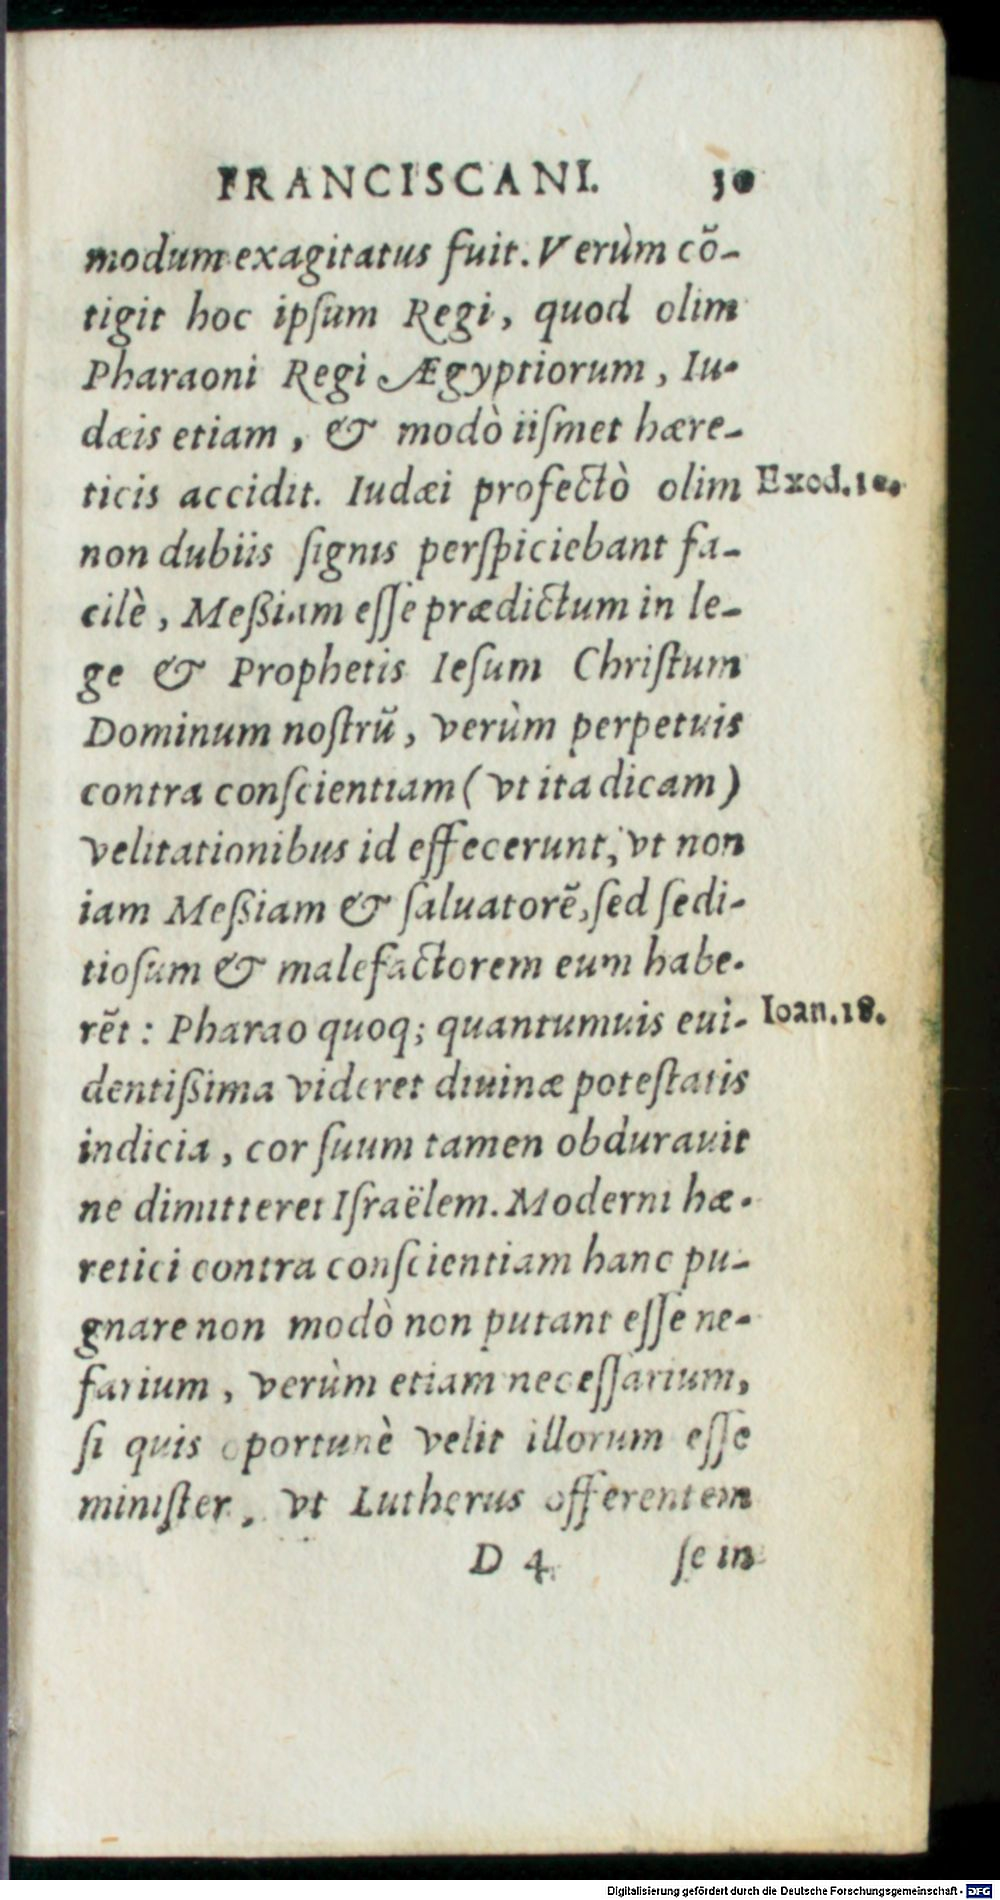 FRANCISCANI. 30
modum exagitatus fuit. Verùm cõ-
tigit hoc ipſum Regi, quod olim
Pharaoni Regi Ægyptiorum, Iu-
dæis etiam, & modò iiſmet hære-
ticis accidit. Iudæi profectò olim
Exod. 10.
non dubiis ſignis perſpiciebant fa-
cilè, Meßiam eſſe prædictum in le-
ge & Prophetis Ieſum Chriſtum
Dominum noſtrũ, verùm perpetuis
contra conſcientiam (vt ita dicam)
velitationibus id effecerunt, vt non
iam Meßiam & ſaluatorẽ, ſed ſedi-
tioſum & malefactorem eum habe-
rẽt : Pharao quoq; quantumuis eui-
Ioan. 18.
dentißima videret diuinæ poteſtatis
indicia, cor ſuum tamen obdurauit
ne dimitteret Iſraëlem. Moderni hæ-
retici contra conſcientiam hanc pu-
gnare non modò non putant eſſe ne-
farium, verùm etiam neceſſarium,
ſi quis oportunè velit illorum eſſe
miniſter, vt Lutherus offerentem
D 4 ſe in
Digitalisierung gefördert durch die Deutsche Forschungsgemeinschaft - DFG